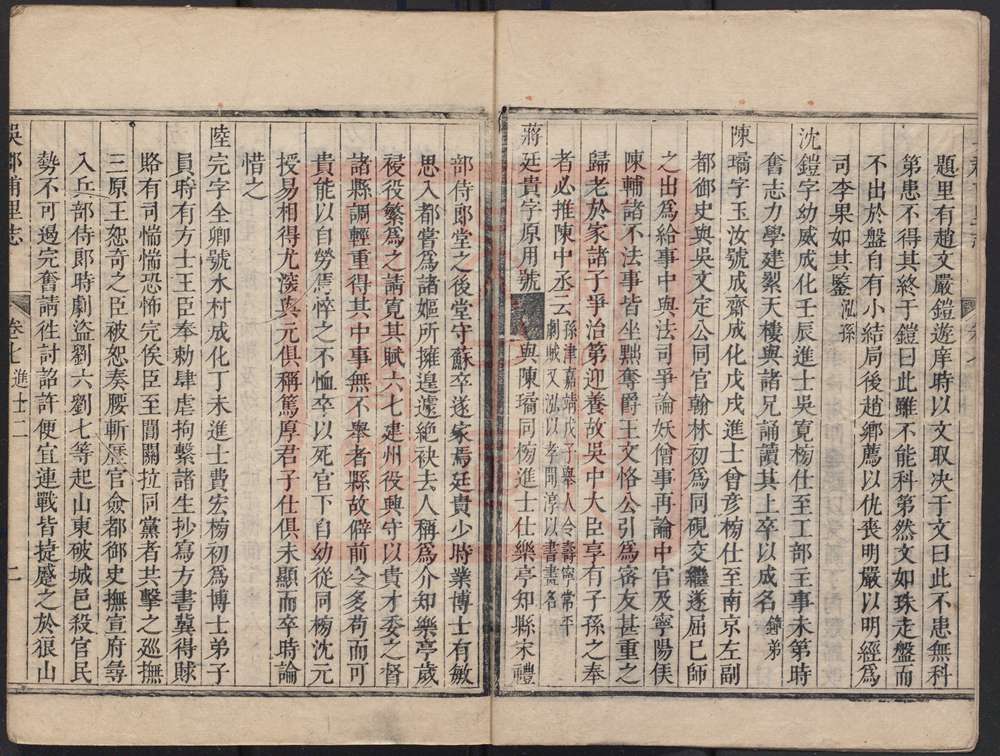 題里有趙文嚴鎧遊庠時以文取決于文曰此不患無科
第患不得其終于鎧曰此雖不能科第然文如珠走盤而
不出於盤自有小結局後趙鄉薦以仇喪明嚴以明經爲
司李果如其鑒 泓孫
沈鎧字幼威成化壬辰進士吳寛榜仕至工部主事未第時
奮志力學建絜天樓與諸兄誦讀其上卒以成名 鏲弟
陳璚字玉汝號成齋成化戊戌進士曾彦榜仕至南京左副
都御史與吳文定公同官翰林初爲同硯交繼遂屈巳師
之出爲給事中與法司爭論妖僧事再論中官及寧陽侯
陳輔諸不法事皆坐黜奪爵王文恪公引爲密友甚重之
歸老於家諸子爭治第迎養故吳中大臣享有子孫之奉
者必推陳中丞云 孫津嘉靖戊子舉人令壽寧常平
劇賊又泓以孝聞淳以書畫名
蔣廷貴字原用號 與陳璚同榜進士仕樂亭知縣宋禮
部侍郎堂之後堂守蘇卒遂家焉廷貴少時業博士有敏
思入都嘗爲諸嫗所擁遑遽絶袂去人稱爲介知樂亭歲
祲役繁爲之請寛其賦六七建州役興守以貴才委之督
諸縣調輕重得其中事無不舉者縣故僻前令多苟而可
貴能以自勞焉悴之不恤卒以死官下自幼從同榜沈元
授易相得尤深與元俱稱篤厚君子仕俱未顯而卒時論
惜之
陸完字全卿號水村成化丁未進士費宏榜初爲博士弟子
員時有方士王臣奉勅肆虐拘繫諸生抄寫方書冀得賕
賂有司惴惴恐怖完俟臣至閶關拉同黨者共擊之廵撫
三原王恕奇之臣被恕奏腰斬歷官僉都御史撫宣府尋
入兵部侍郎時劇盜劉六劉七等起山東破城邑殺官民
勢不可遏完奮請徃討詔許便宜連戰皆捷蹙之於狼山
吳郡甫里志 卷七 進士 二